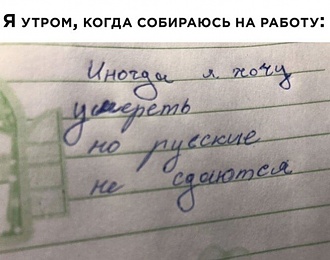 Я УТРОМ, КОГДА СОБИРАЮСЬ НА РАБОТУ:
Иногда я хочу
умереть
но русские
не сдаются